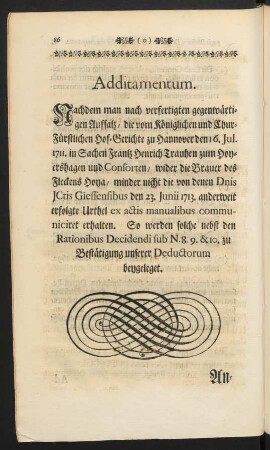 86 ( 0 )
Additamentum.
Nachdem man nach verfertigten gegenwärti-
gen Auffsatz/ die vom Königlichen und Chur-
Fürstlichen Hof-Gerichte zu Hannover den 16. Jul.
1711. in Sachen Frantz Henrich Trauthen zum Hoy-
ershagen und Consorten/ wider die Brauer des
Fleckens Hoya/ minder nicht die von denen Dnis
JCtis Giessensibus den 23. Junii 1713. anderweit
erfolgte Urthel ex actis manualibus commu-
niciret erhalten. So werden solche nebst den
Rationibus Decidendi sub N. 8. 9. &10. zu
Bestätigung unserer Deductorum
beygeleget.
An-